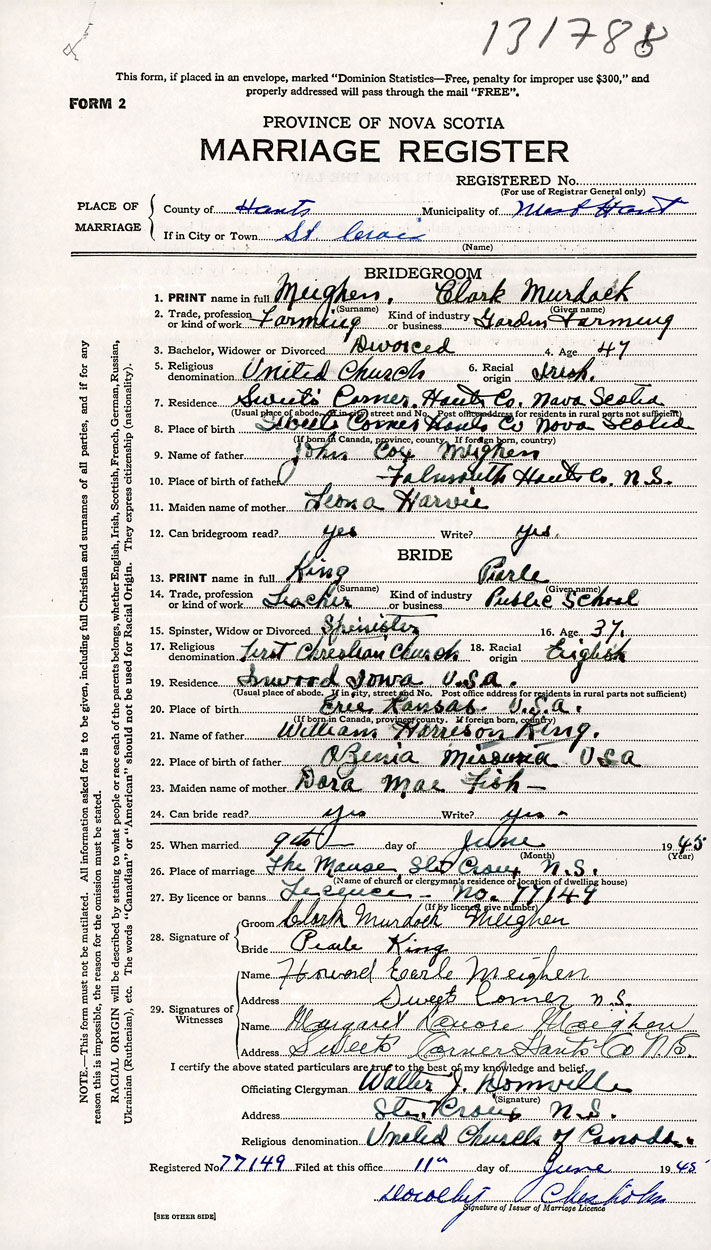 131788
This form, if placed in an envelope, marked "Dominion Statistics—Free, penalty for improper use $300," and
properly addressed will pass through the mail "FREE".
FORM 2
PROVINCE OF NOVA SCOTIA
MARRIAGE REGISTER
REGISTERED No.
(For use of Registrar General only)
PLACE OF MARRIAGE
County of Hants Municipality of West Hant
If in City or Town St. Croix
(Name)
BRIDEGROOM
1. PRINT name in full Meighen, Clark Murdock
(Surname) (Given name)
2. Trade, profession or kind of work Farming Kind of industry or business Garden Farming
3. Bachelor, Widower or Divorced Divorced 4. Age 47
5. Religious denomination United Church 6. Racial origin Irish.
7. Residence Sweets Corner. Hants Co. Nova Scotia
(Usual place of abode. If in city, street and No. Post office address for residents in rural parts not sufficient)
8. Place of birth Sweets Corner Hants Co Nova Scotia
(If born in Canada, province, county. If foreign born, country)
9. Name of father John Cox Meighen
10. Place of birth of father Falmouth Hants Co. N.S.
11. Maiden name of mother Leona Harvie
12. Can bridegroom read? yes Write? yes.
BRIDE
13. PRINT name in full King Pearle
(Surname) (Given name)
14. Trade, profession or kind of work Teacher Kind of industry or business Public School
15. Spinster, Widow or Divorced Spinister 16. Age 37.
17. Religious denomination First Christian Church 18. Racial origin English
19. Residence Inwood Iowa U.S.A.
(Usual place of abode. If in city, street and No. Post office address for residents in rural parts not sufficient)
20. Place of birth Erie Kansas. U.S.A.
(If born in Canada, province, county. If foreign born, country)
21. Name of father William Harrison King.
22. Place of birth of father Missouria USA
23. Maiden name of mother Dora Mae Fish—
24. Can bride read? yes Write? yes -
25. When married 9th day of June 1945
(Month) (Year)
26. Place of marriage The Manse Ste Croix N.S.
(Name of church or clergyman's residence or location of dwelling house)
27. By licence or banns Licence - No. 77149
(If by licence, give number)
28. Signature of
Groom Clark Murdoch Meighen
Bride Pearle King
29. Signatures of Witnesses
Name Howard Earle Meighen
Address Sweets Corner N.S.
Name Margaret Lenore Meighen
Address Sweets Corner Hants Co N.S.
I certify the above stated particulars are true to the best of my knowledge and belief.
Officiating Clergyman Walter J. Domville
(Signature)
Address Ste. Croix N.S.
Religious denomination United Church of Canada.
Registered No. 77149 Filed at this office 11th day of June 1945
Dorothy Chisholm
Signature of Issuer of Marriage Licence
[SEE OTHER SIDE]
NOTE.—This form must not be mutilated. All information asked for is to be given, including full Christian and surnames of all parties, and if for any
reason this is impossible, the reason for the omission must be stated.
RACIAL ORIGIN will be described by stating to what people or race each of the parents belongs, whether English, Irish, Scottish, French, German, Russian,
Ukrainian (Ruthenian), etc. The words "Canadian" or "American" should not be used for Racial Origin. They express citizenship (nationality).